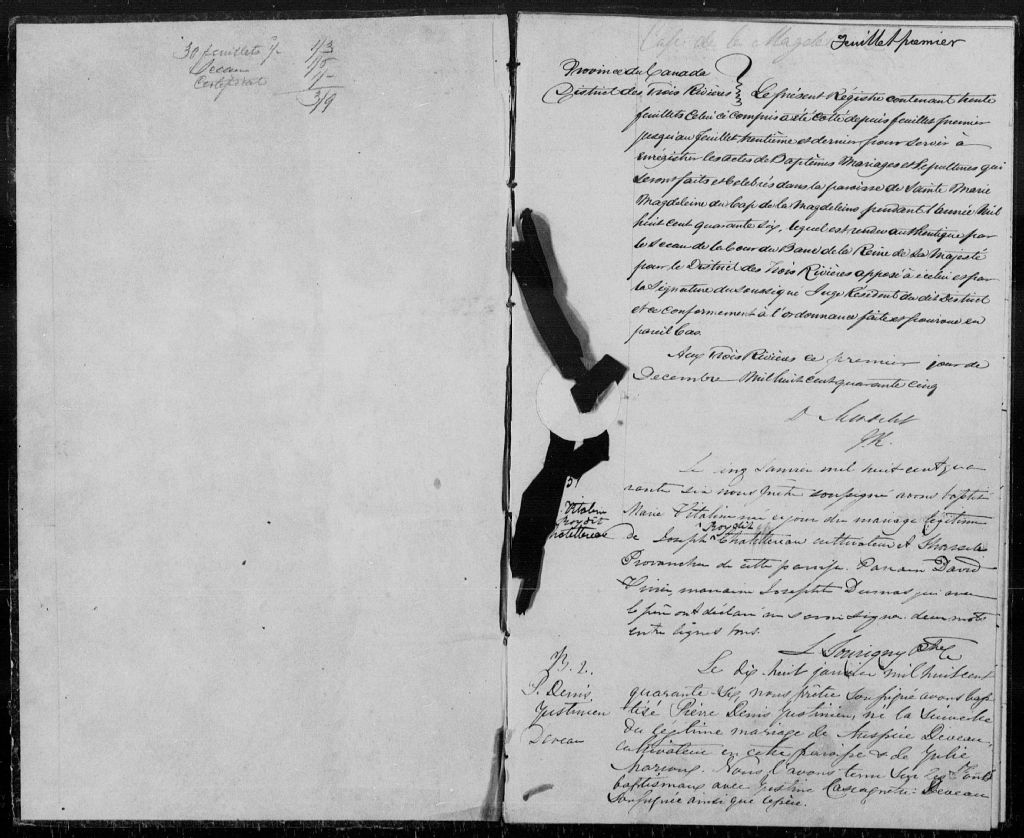 30 feuillets
Sceau
Certificat
1/3
1/5
1/-
3/9
Cap de la Magde
Feuillet premier
Province du Canada
District des Trois Rivières
Le présent Régistre contenant trente
feuillets Celui ci compris a été Cotté depuis feuillet premier
jusqu'au feuillet trentième et dernier pour servir à
enrégistrer les actes de Baptêmes Mariages et Sépultures qui
seront faits et Célébrés dans la paroisse de Sainte Marie
Magdeleine du Cap de la Magdeleine pendant l'année Mil
huit cent quarante six, lequel est rendu authentique par
le Sceau de la Cour du Banc de la Reine de Sa Majesté
pour le District des Trois Rivières apposé à icelui et par
la Signature du Soussigné Juge Résident du dit District
et ce conformement à l'ordonnance faite et pourvue en
pareil Cas.
Aux Trois Rivières ce premier jour de
Decembre Mil huit cent quarante cinq
D Mondelet
J.R.
Le cinq Janvier mil huit cent qua
rante six nous Prêtre soussigné avons baptisé
Marie Vitaline née ce jour du mariage légitime
Roy dit
de Joseph Chatellereau cultivateur et
Provancher de cette paroisse. Parrain David
marraine Josephte Dumas qui avec
le père ont déclaré ne savoir signer. deux mots
entre lignes bons.
L Souvigny Ptre
Vitaline
Roy dit
Chatellereau
B. 2.
P. Denis
Justinien
Deveau
Le dix huit janvier mil huit cent
quarante six nous prêtre soussigné avons bap
tisé Pierre Denis Justinien, né la
du legitime mariage de Deveau
cultivateur en cette paroisse & de Julie
Nous l'avons tenu sur les fonts
baptismaux avec Justine Deveau
soussignée ainsi que le père.